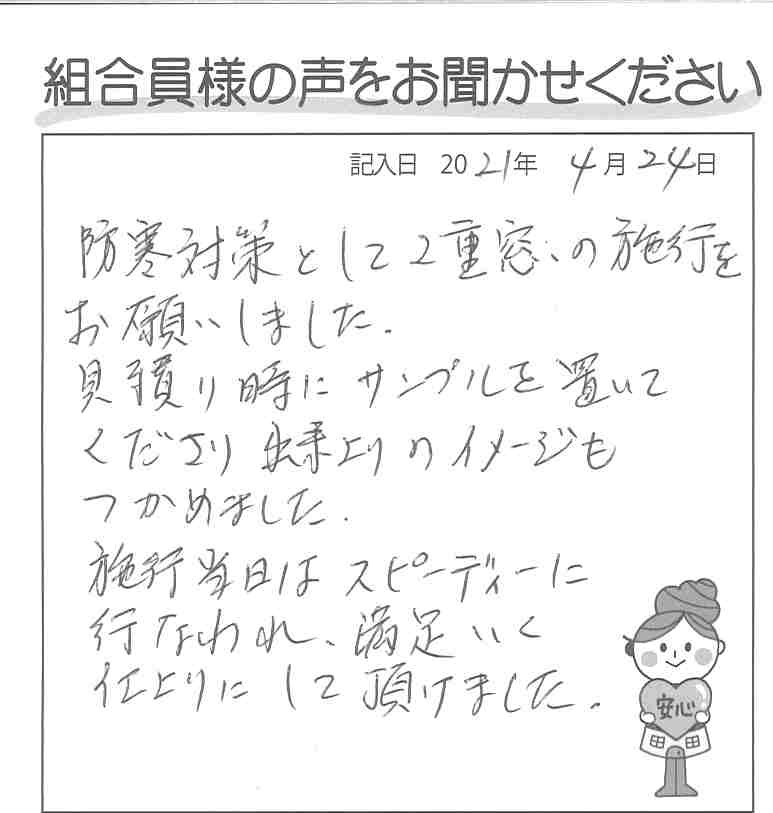 組合員様の声をお聞かせください
記入日 2021年 4月24日
防寒対策として2重窓の施行を
お願いしました.
見積り時にサンプルを置いて
くださり出来上りのイメージも
つかめました.
施行当日はスピーディーに
行なわれ、満足いく
仕上りにして頂けました.
安心